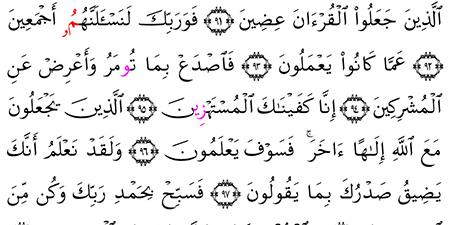 الَّذِينَ جَعَلُوا۟ الْقُرْءَانَ عِضِينَ ٩١ فَوَرَبِّكَ لَنَسْـَٔلَنَّهُمُۥ أَجْمَعِينَ
٩٢ عَمَّا كَانُوا۟ يَعْمَلُونَ ٩٣ فَاصْدَعْ بِمَا تُومَرُ وَأَعْرِضْ عَنِ
الْمُشْرِكِينَ ٩٤ إِنَّا كَفَيْنَاكَ الْمُسْتَهْزِينَ ٩٥ الَّذِينَ يَجْعَلُونَ
مَعَ اللَّهِ إِلَـٰهًا ءَاخَرَ ۚ فَسَوْفَ يَعْلَمُونَ ٩٦ وَلَقَدْ نَعْلَمُ أَنَّكَ
يَضِيقُ صَدْرُكَ بِمَا يَقُولُونَ ٩٧ فَسَبِّحْ بِحَمْدِ رَبِّكَ وَكُن مِّنَ